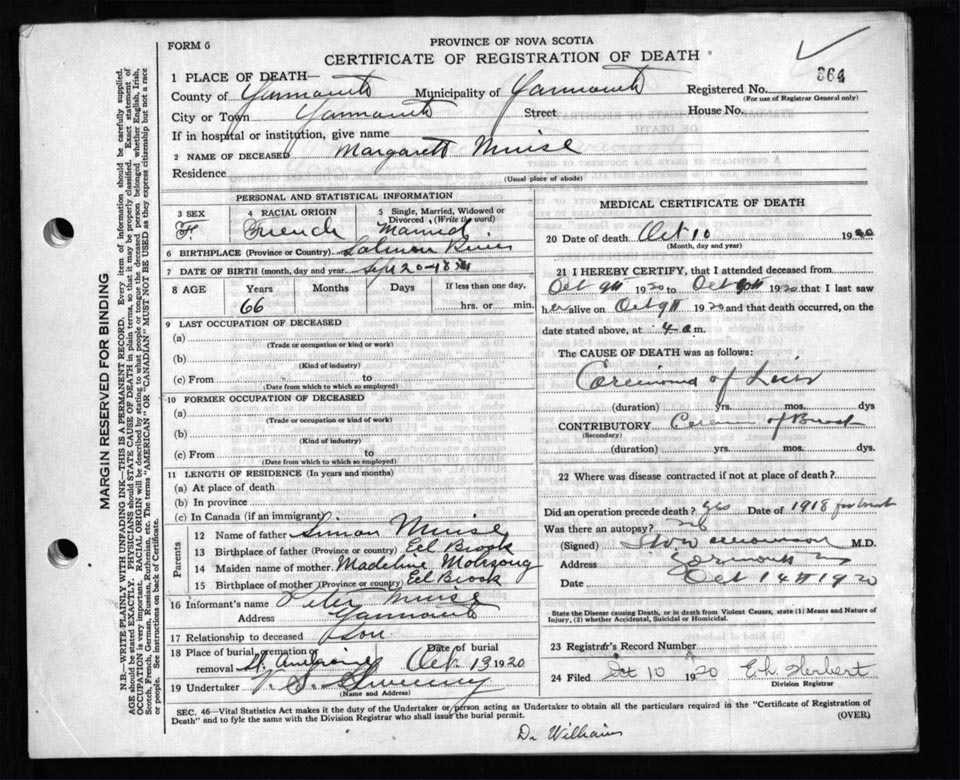 PROVINCE OF NOVA SCOTIA
FORM 6
CERTIFICATE OF REGISTRATION OF DEATH
364
1 PLACE OF DEATH—
County of Yarmouth Municipality of Yarmouth Registered No.
(For use of Registrar General only)
City or Town Yarmouth Street House No.
If in hospital or institution, give name
2 NAME OF DECEASED Margarett Muise
Residence
(Usual place of abode)
PERSONAL AND STATISTICAL INFORMATION
3 SEX 4 RACIAL ORIGIN 5 Single, Married, Widowed or Divorced (Write the word)
F French Married
6 BIRTHPLACE (Province or Country) Salmon River
7 DATE OF BIRTH (month, day and year) Sept 20-
8 AGE Years Months Days If less than one day,
66 hrs. or min.
9 LAST OCCUPATION OF DECEASED
(a)
(Trade or occupation or kind of work)
(b)
(Kind of industry)
(c) From to
(Date from which to which so employed)
10 FORMER OCCUPATION OF DECEASED
(a)
(Trade or occupation or kind of work)
(b)
(Kind of industry)
(c) From to
(Date from which to which so employed)
11 LENGTH OF RESIDENCE (In years and months)
(a) At place of death
(b) In province
(c) In Canada (if an immigrant)
Parents
12 Name of father Simon Muise
13 Birthplace of father (Province or country) Eel Brook
14 Maiden name of mother Madeline
15 Birthplace of mother (Province or country) Eel Brook
16 Informant's name Peter Muise
Address Yarmouth
17 Relationship to deceased Son
18 Place of burial, cremation or removal Date of burial
St. Oct. 13 1920
19 Undertaker V. S. Sweeny
(Name and Address)
MEDICAL CERTIFICATE OF DEATH
20 Date of death Oct 10 1920
(Month, day and year)
21 I HEREBY CERTIFY, that I attended deceased from
Oct 9th 1920 to Oct 1920 that I last saw
her alive on Oct 9th 1920 and that death occurred, on the
date stated above, at 4 a.m.
The CAUSE OF DEATH was as follows:
Carcinoma of Liver
(duration) yrs. mos. dys
CONTRIBUTORY Cancer of Breast
(Secondary)
(duration) yrs. mos. dys
22 Where was disease contracted if not at place of death?
Did an operation precede death? yes Date of 1918 for breast
Was there an autopsy? no
(Signed) M.D.
Address Yarmouth
Date Oct 14th 1920
State the Disease causing Death, or in death from Violent Causes, state (1) Means and Nature of
Injury, (2) whether Accidental, Suicidal or Homicidal.
23 Registrar's Record Number
24 Filed Oct 10 1920 E. h. Herbert
Division Registrar
SEC. 46—Vital Statistics Act makes it the duty of the Undertaker or person acting as Undertaker to obtain all the particulars required in the "Certificate of Registration of
Death" and to fyle the same with the Division Registrar who shall issue the burial permit. (OVER)
Dr Williams
MARGIN RESERVED FOR BINDING
N.B.—WRITE PLAINLY WITH UNFADING INK—THIS IS A PERMANENT RECORD. Every item of information should be carefully supplied.
AGE should be stated EXACTLY. PHYSICIANS should STATE CAUSE OF DEATH in plain terms, so that it may be properly classified. Exact statement of
OCCUPATION is very important. RACIAL ORIGIN will be described by stating to what people or tongue the deceased person belonged whether English, Irish,
Scotch, French, German, Russian, Ruthenian, etc. The terms "AMERICAN" OR "CANADIAN" MUST NOT BE USED as they express citizenship but not a race
or people. See instructions on back of Certificate.